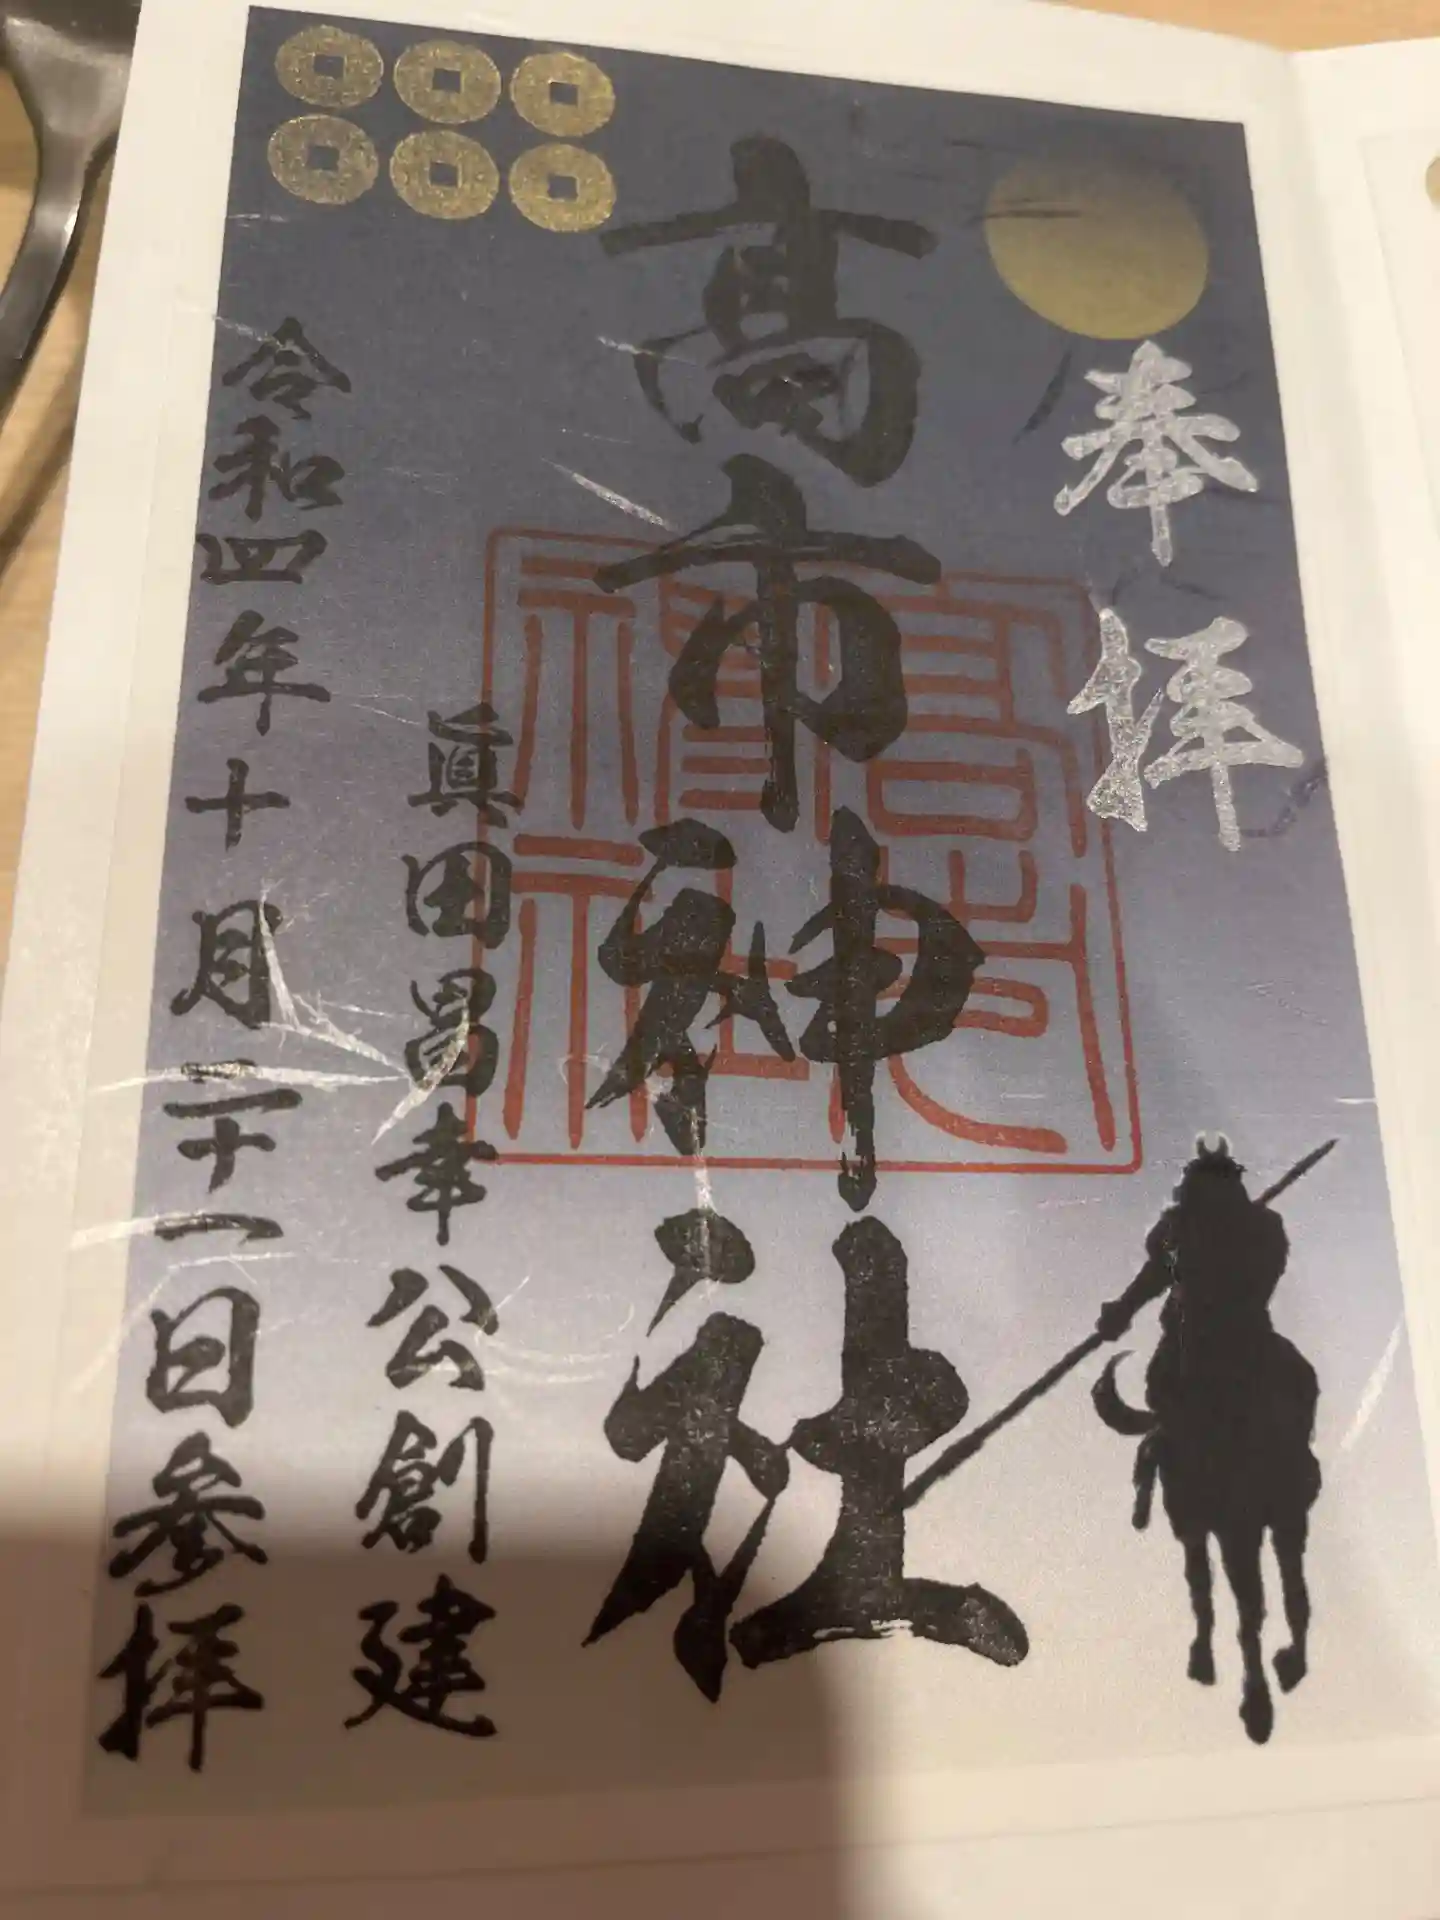 奉拝
高市神社
高市神社
眞田昌幸公創建
令和四年十月二十一日参拝